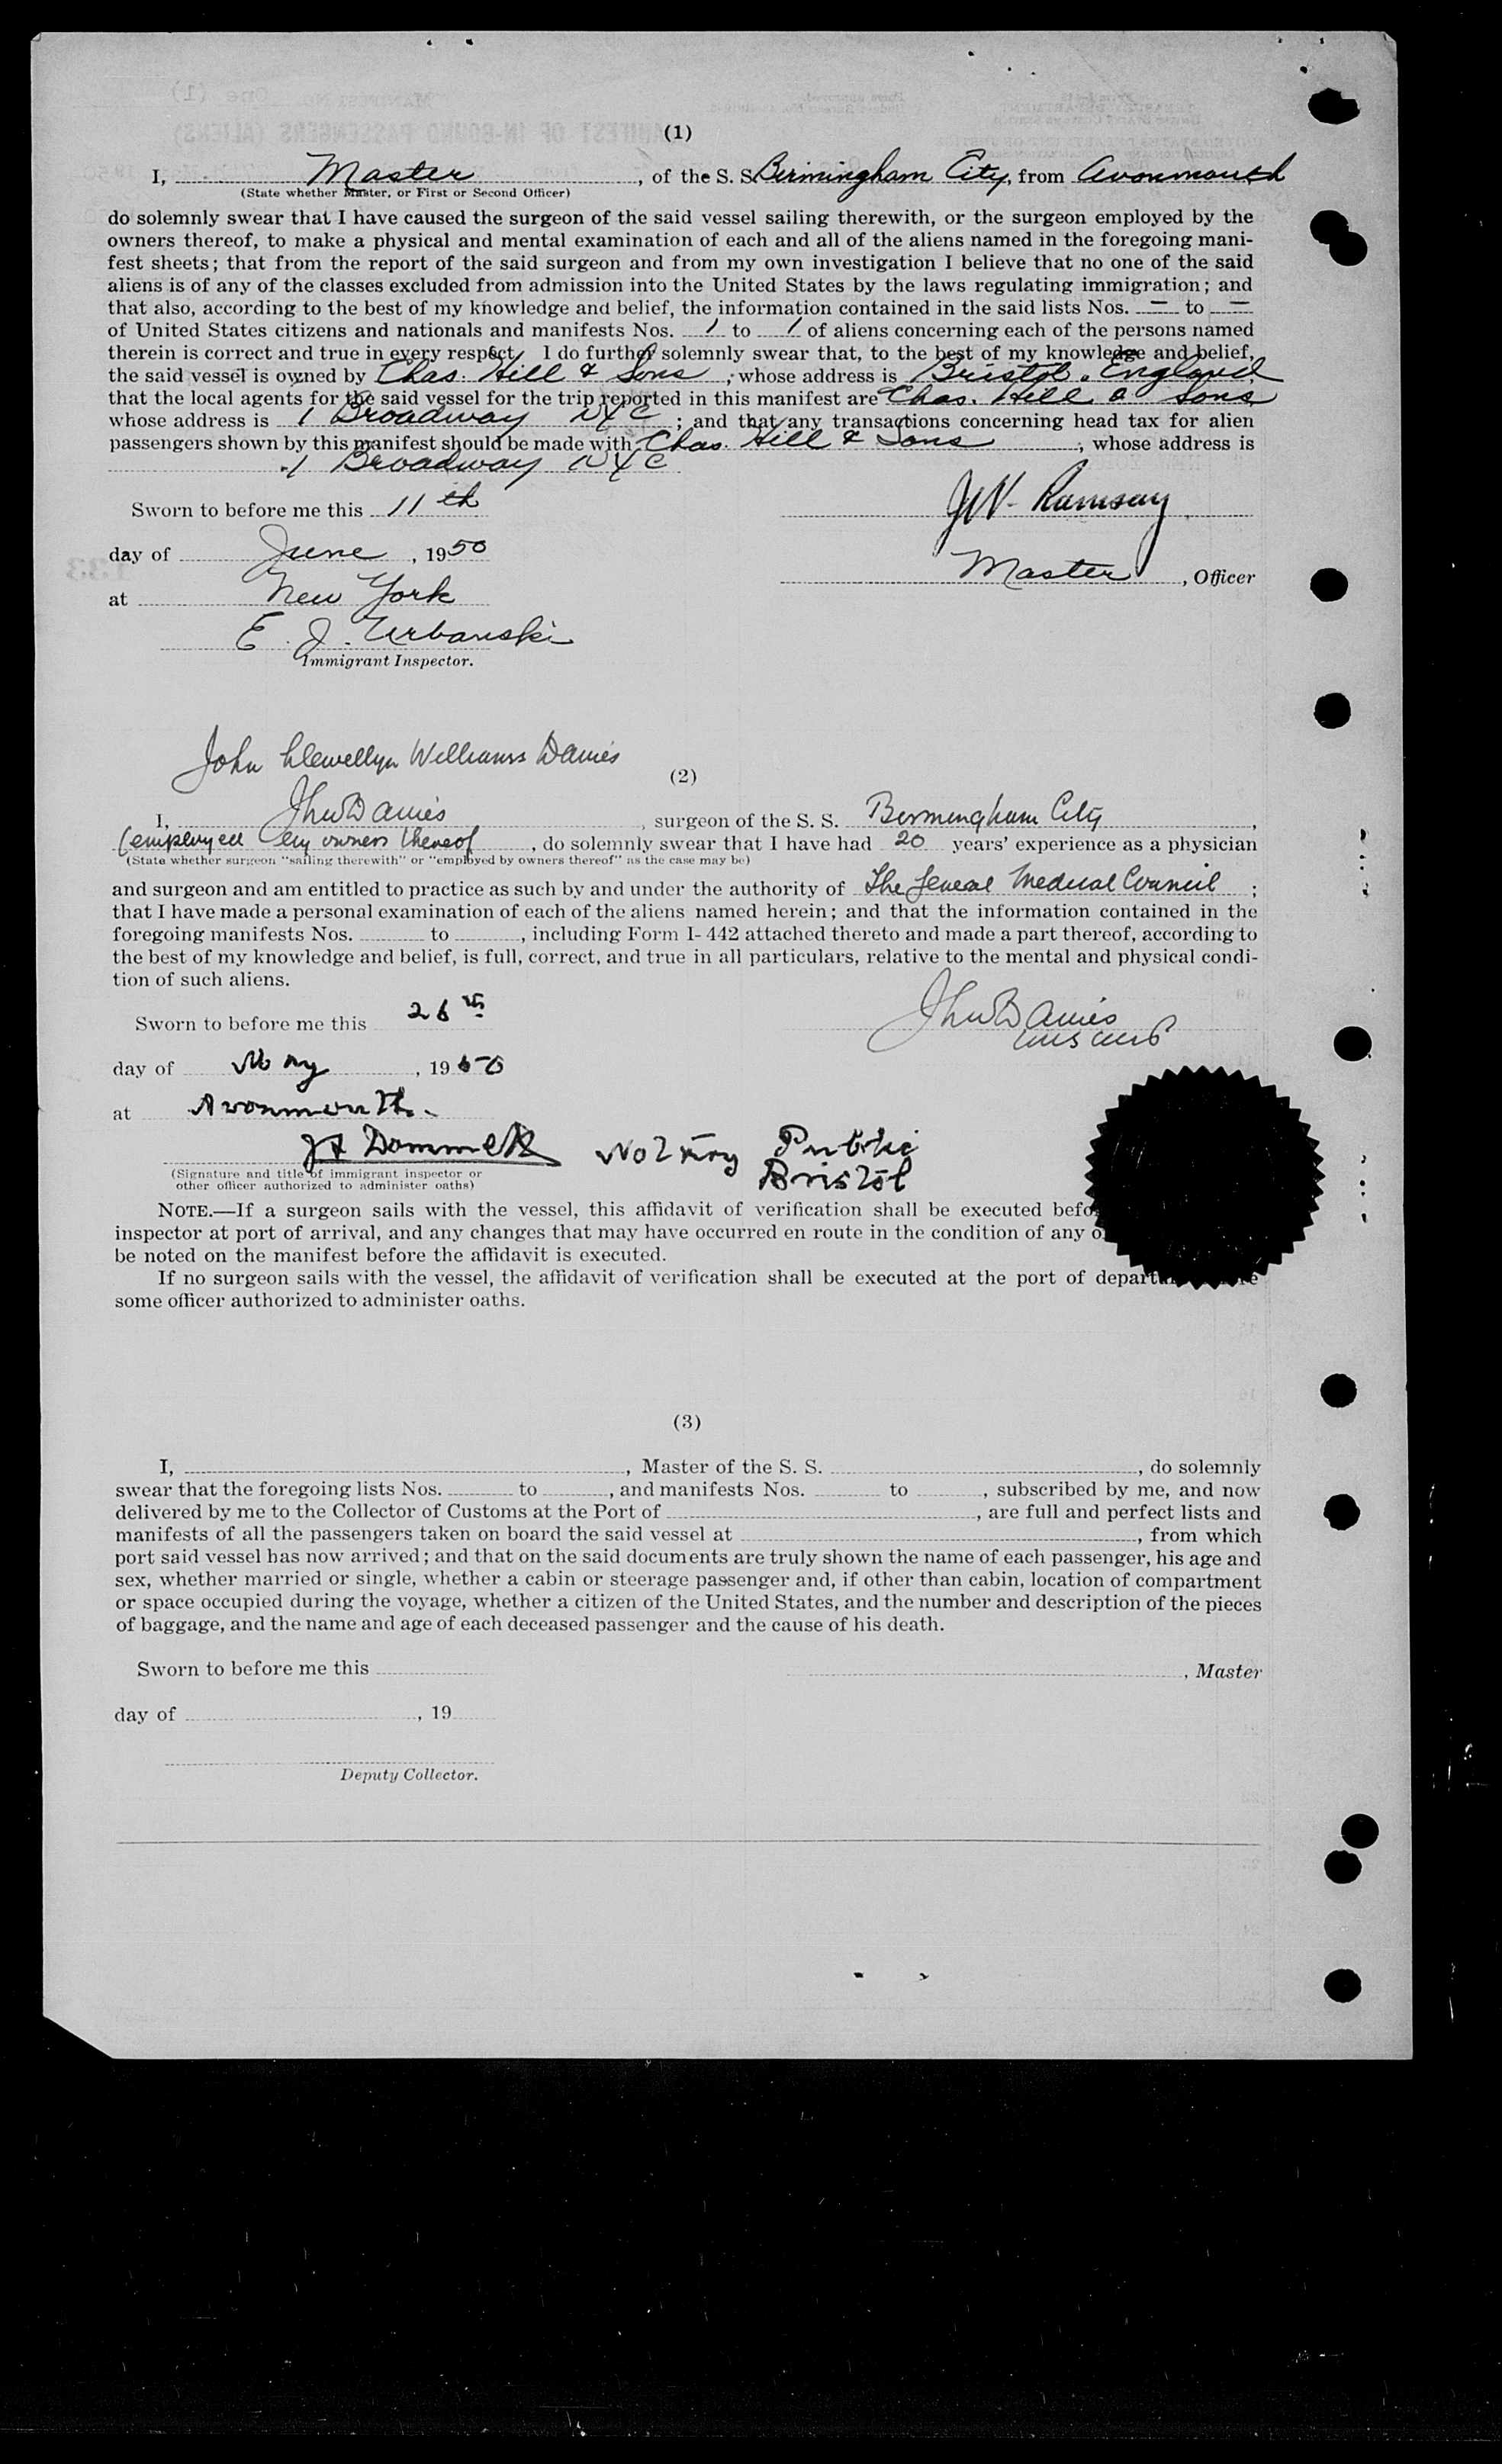 (1)
I, Master, of the S. S. Birmingham City, from Avonmouth
(State whether Master, or First or Second Officer)
do solemnly swear that I have caused the surgeon of the said vessel sailing therewith, or the surgeon employed by the
owners thereof, to make a physical and mental examination of each and all of the aliens named in the foregoing mani-
fest sheets; that from the report of the said surgeon and from my own investigation I believe that no one of the said
aliens is of any of the classes excluded from admission into the United States by the laws regulating immigration; and
that also, according to the best of my knowledge and belief, the information contained in the said lists Nos. — to —
of United States citizens and nationals and manifests Nos. 1 to 1 of aliens concerning each of the persons named
therein is correct and true in every respect. I do further solemnly swear that, to the best of my knowledge and belief,
the said vessel is owned by Chas. Hill & Sons, whose address is Bristol. England,
that the local agents for the said vessel for the trip reported in this manifest are Chas. Hill & Sons
whose address is 1 Broadway NYC; and that any transactions concerning head tax for alien
passengers shown by this manifest should be made with Chas. Hill & Sons, whose address is
1 Broadway NYC
Sworn to before me this 11th
JW Ramsay
day of June, 1950
Master, Officer
at New York
E. J. Urbanski
Immigrant Inspector.
John Llewellyn Williams Davies
(2)
I, JLlwDavies, surgeon of the S. S. Birmingham City,
(employed by owners thereof, do solemnly swear that I have had 20 years' experience as a physician
(State whether surgeon "sailing therewith" or "employed by owners thereof" as the case may be)
and surgeon and am entitled to practice as such by and under the authority of The General Medical Council;
that I have made a personal examination of each of the aliens named herein; and that the information contained in the
foregoing manifests Nos. to , including Form I-442 attached thereto and made a part thereof, according to
the best of my knowledge and belief, is full, correct, and true in all particulars, relative to the mental and physical condi-
tion of such aliens.
Sworn to before me this 26th
JLlwDavies
day of May, 1950
at Avonmouth.
Notary Public
Bristol
(Signature and title of immigrant inspector or
other officer authorized to administer oaths)
NOTE.—If a surgeon sails with the vessel, this affidavit of verification shall be executed befo
inspector at port of arrival, and any changes that may have occurred en route in the condition of any o
be noted on the manifest before the affidavit is executed.
If no surgeon sails with the vessel, the affidavit of verification shall be executed at the port of depart
some officer authorized to administer oaths.
(3)
I, , Master of the S. S. , do solemnly
swear that the foregoing lists Nos. to , and manifests Nos. to , subscribed by me, and now
delivered by me to the Collector of Customs at the Port of , are full and perfect lists and
manifests of all the passengers taken on board the said vessel at , from which
port said vessel has now arrived; and that on the said documents are truly shown the name of each passenger, his age and
sex, whether married or single, whether a cabin or steerage passenger and, if other than cabin, location of compartment
or space occupied during the voyage, whether a citizen of the United States, and the number and description of the pieces
of baggage, and the name and age of each deceased passenger and the cause of his death.
Sworn to before me this
, Master
day of , 19
Deputy Collector.